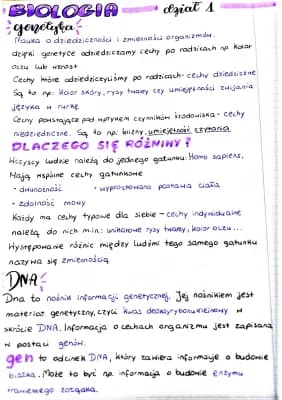 BIOLOGIA dział 1
genetyka
Nauka o dziedziczności i zmienności organizmów.
dzięki genetyce odziedziczamy cechy po rodzicach np kolor
oczu lub wzrost
Cechy które odziedziczyliśmy po rodzicach- cechy dziedziczne
Są to np: kolor skóry, rysy twarzy czy umiejętność zwijania
języka w rurkę.
Cechy powstające pod wpływem czynników środowiska- cechy
niedziedziczne. Są to np: blizny, umiejętność czytania
DLACZEGO SIĘ RÓŻNIMY?
Wszyscy ludzie należą do jednego gatunku: Homo sapiens,
Mają wspólne cechy gatunkowe
• dwunożność • wyprostowana postawa ciała
• zdolność mowy
Każdy ma cechy typowe dla siebie - cechy indywidualne
należą do nich m.in.: unikatowe rysy twarzy, kolor oczu...
Występowanie różnic między ludźmi tego samego gatunku
nazywa się zmiennością
DNA
Dna to nośnik informacji genetycznej. Jej nośnikiem jest
materiał genetyczny, czyli kwas deoksyrybonukleinowy w
skrócie DNA. Informacja o cechach organizmu jest zapisana
w postaci genów.
gen to odcinek DNA, który zawiera informację o budowie
białka. Może to być np. informacja o budowie enzymu
trawiennego żołądka.